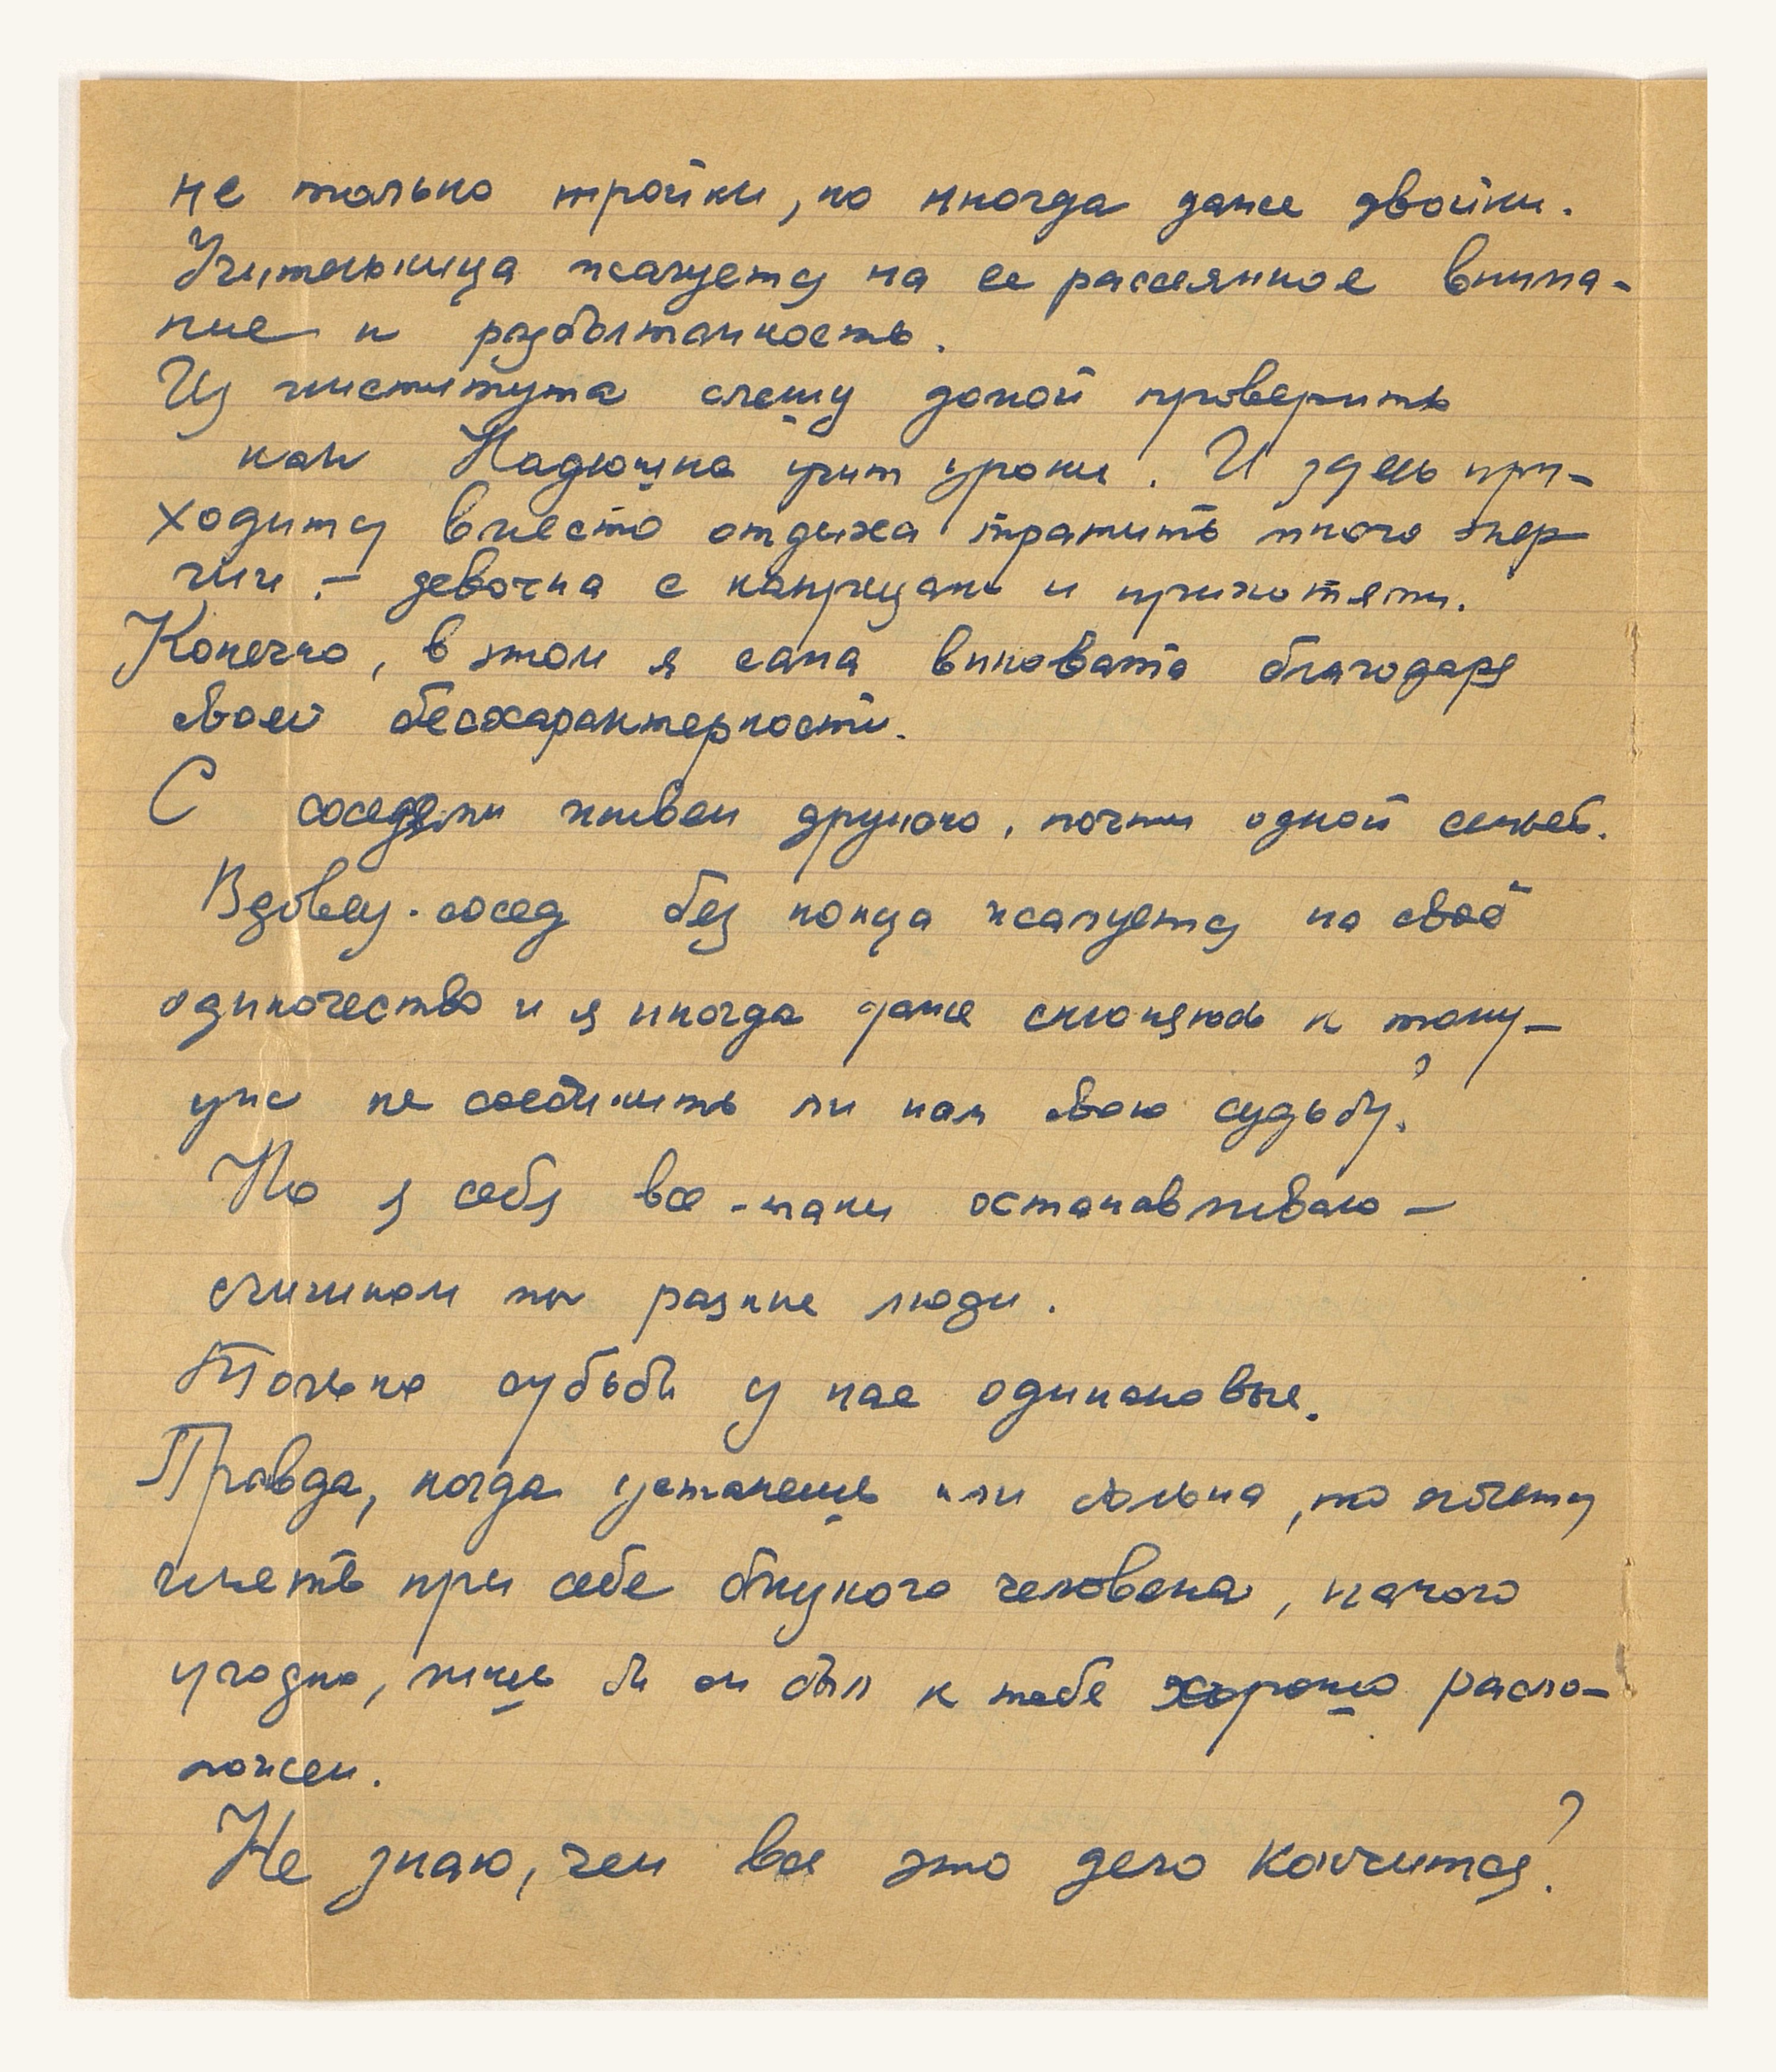 не только тройки, но иногда даже двойки.
Учительница жалуется на ее рассеянное внима-
ние и разболтанность.
Из института спешу домой проверить
как Надюшка учит уроки. И здесь при-
ходится вместо отдыха тратить много энер-
гии – девочка с капризами и прихотями.
Конечно, в этом я сама виновата благодаря
своей бесхарактерности.
С соседями живем дружно, почти одной семьей.
Вдовец-сосед без конца жалуется на своё
одиночество и я иногда даже склоняюсь к тому –
уже не соединить ли нам свою судьбу?
Но я себя все-таки останавливаю –
слишком мы разные люди.
Только судьбы у нас одинаковые.
Правда, когда устанешь или больна, то хочется
иметь при себе близкого человека, какого
угодно, лишь бы он был к тебе хорошо распо-
ложен.
Не знаю, чем все это дело кончится?